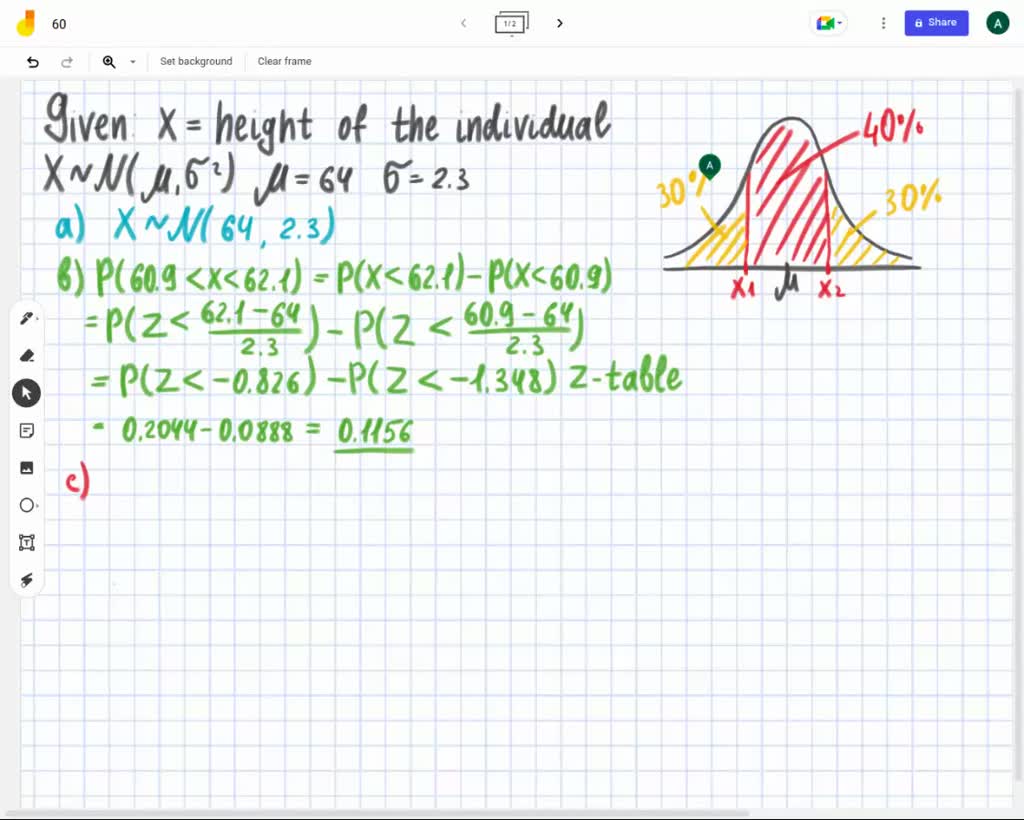 60
1/2
Share
A
Set background
Clear frame
Given: X = height of the individual
X ~ N(μ, σ²) μ = 64 σ = 2.3
a) X ~ N(64, 2.3)
b) P(60.9 < X < 62.1) = P(X < 62.1) - P(X < 60.9)
= P(Z < 62.1 - 64 / 2.3) - P(Z < 60.9 - 64 / 2.3)
= P(Z < -0.826) - P(Z < -1.348) Z-table
= 0.2044 - 0.0888 = 0.1156
c)
A
40%
30%
30%
X1 μ X2
T